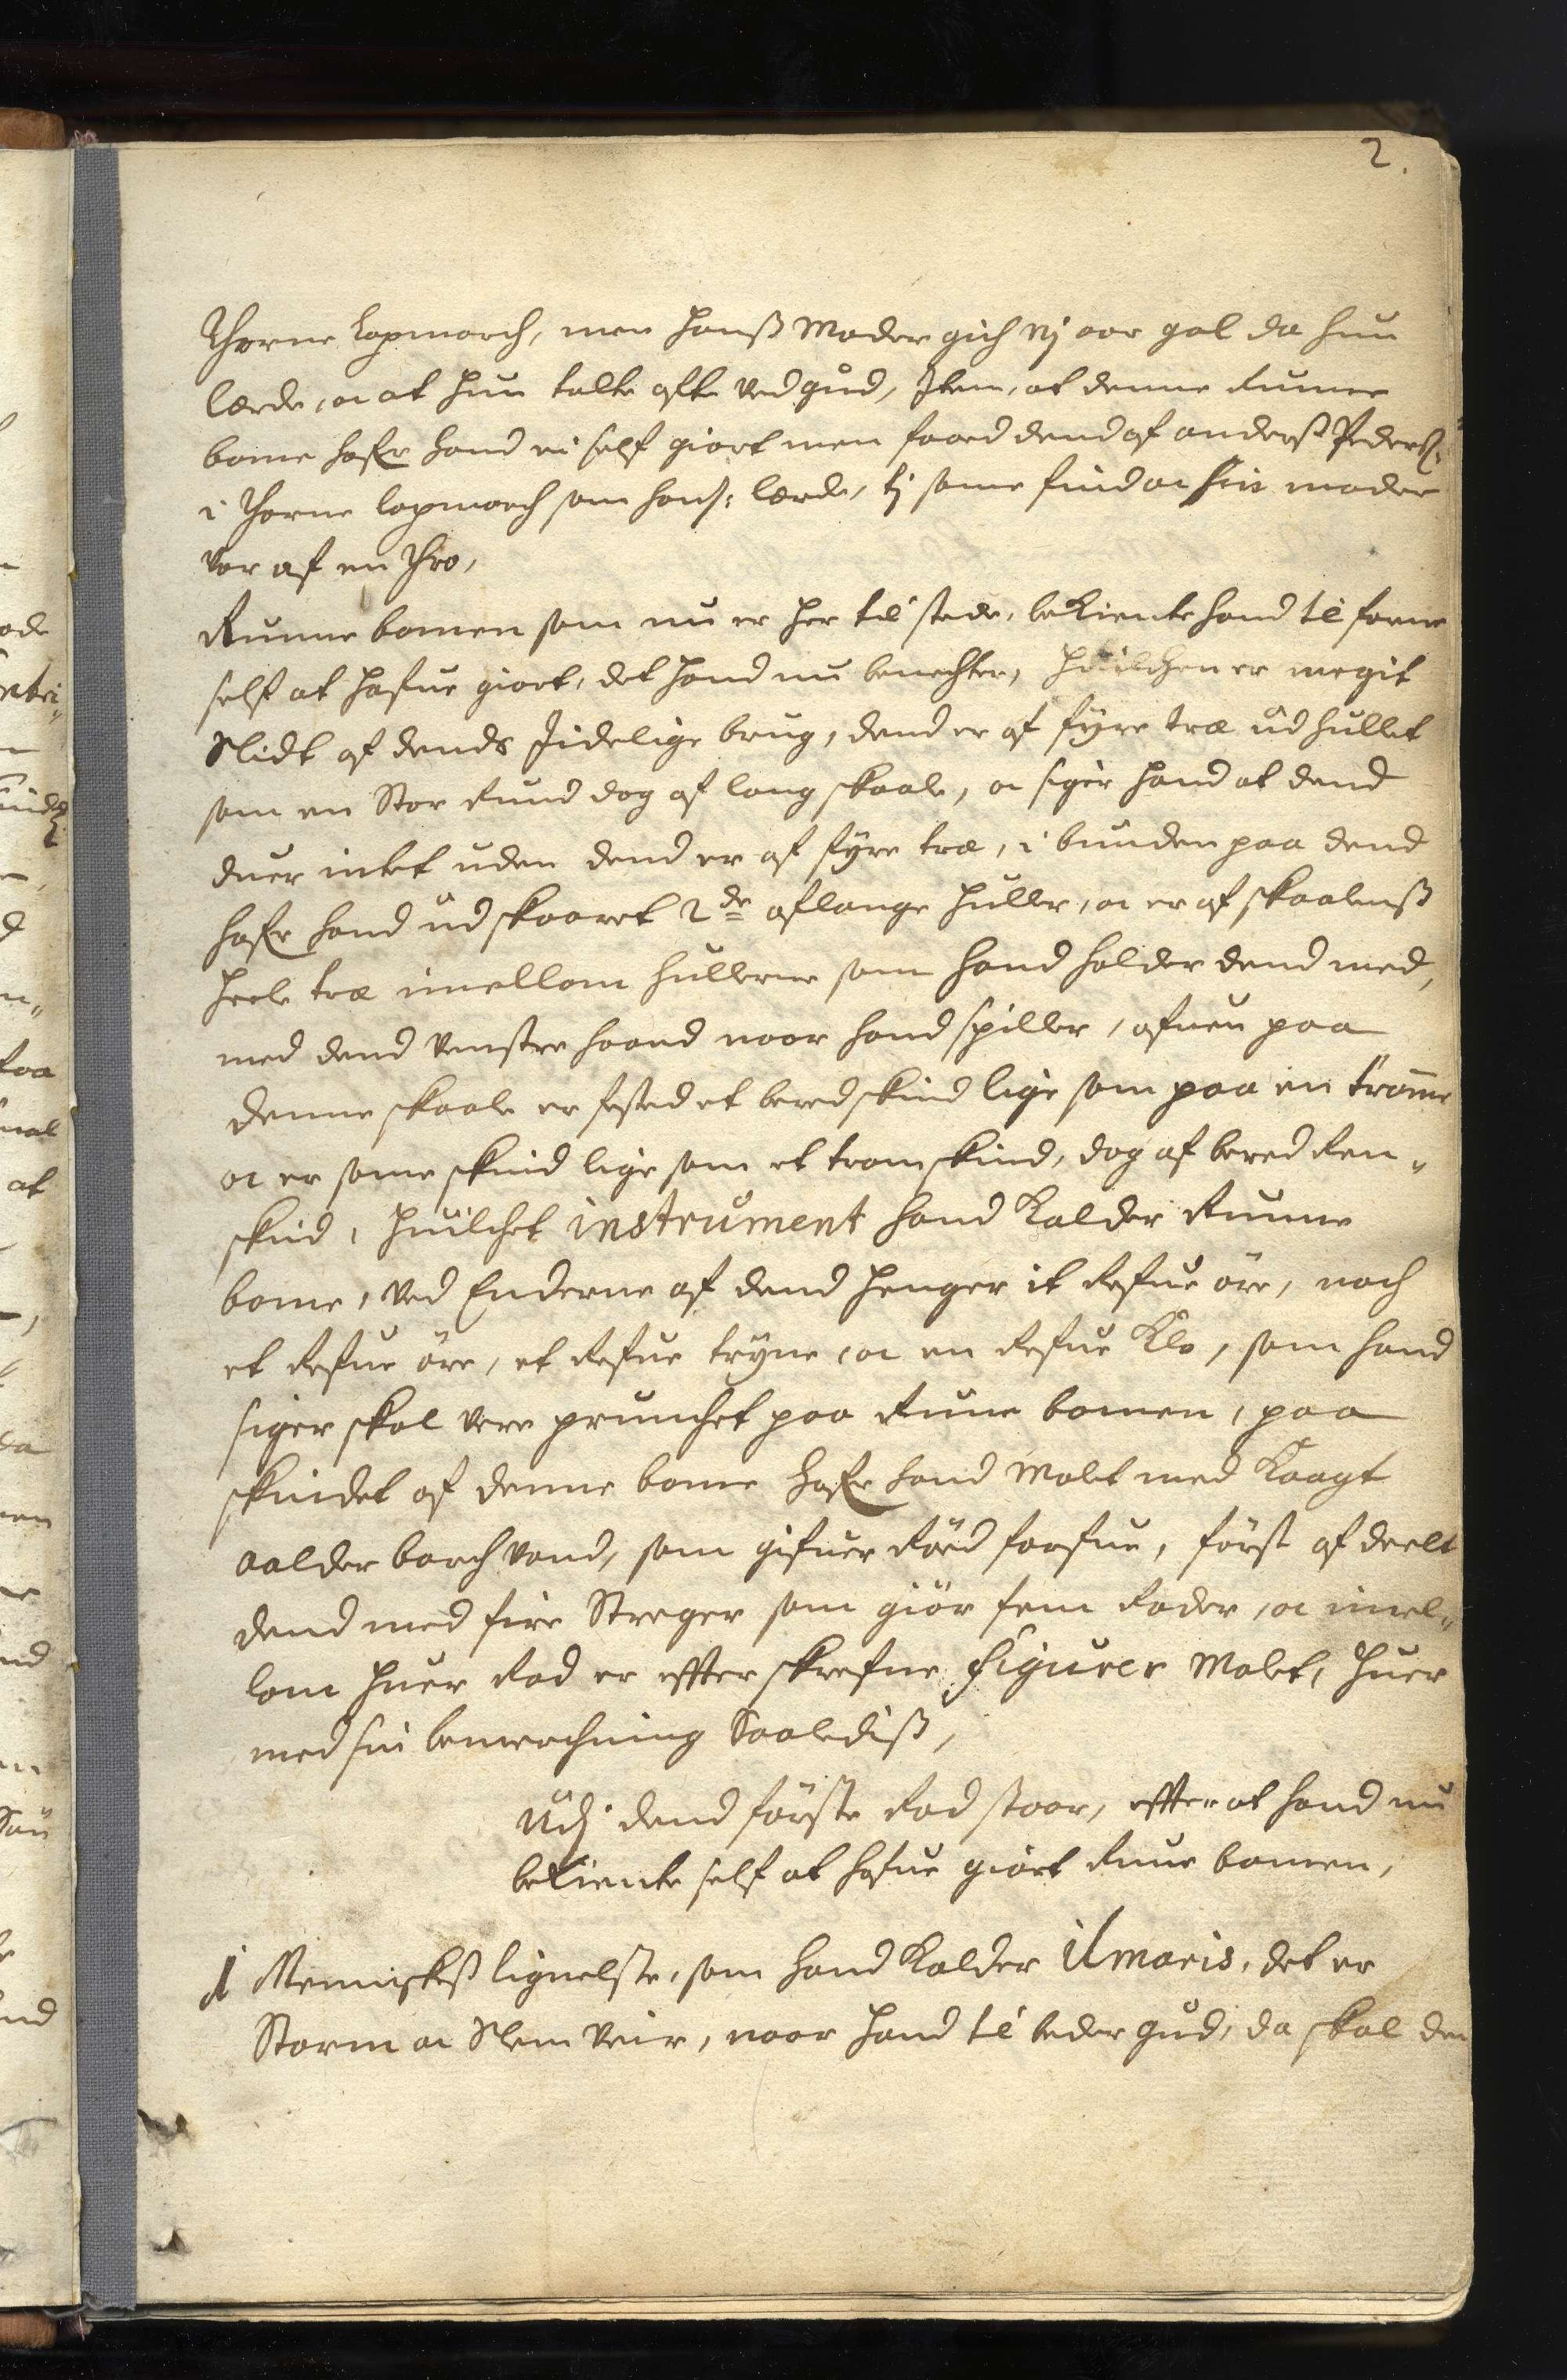 2.
Thorne Lapmarch, men hanß Moder gich vj aar gal da hun
lærde, oc at hun talte ofte ved gud, Item, at denne Runne
bome hafr hand ei self giort men faaed dend af anderß Pederß:
i Thorne lapmarch som hans: lærde, tj same find oc hin moder
var af en Thro,
Runne bomen som nu er her til stede, bekiente hand til forne
self at hafue giort, det hand nu benechter, huilchen er megit
Slidt af dends Jidelige brug, dend er af fyre træ udhullet
som en Stor rund dog af lang skaale, oc siger hand at dend
duer intet uden dend er af fyre træ, i bunden paa dend
hafr hand udskaaret 2de aflange huller, oc er af skaalenß
heele træ imellom hullerne som hand holder dend med,
med dend venstre haand naar hand spiller, ofuen paa
denne skaale er fested et bered skind lige som paa en tromme
oc er same skind lige som et trom skind, dog af bered Ren„
skind, huilchet instrument hand kalder Runne
bome, ved Enderne af dend henger it Refue öre, noch
et Refue öre, et Refue tryne, oc en Refue Klo, som hand
siger skal vere prunchet paa Rune bomen, paa
skindet af denne bome hafr hand Malet med Kaagt
aalder barch vand, som gifuer Röed farfue, först af deelt
dend med fire Streger som giör fem Rader, oc imel„
lom huer Rad er effter skrefne figurer Malet, huer
med sin bemerchning Saalediß,
Udj dend förste Rad staar, effter at hand nu
bekiente self at hafue giört Rune bomen,
1 Menniskeß lignelse, som hand Kalder ilmaris, det er
Storm oc Slem veir, naar hand til beder gud, da skal den